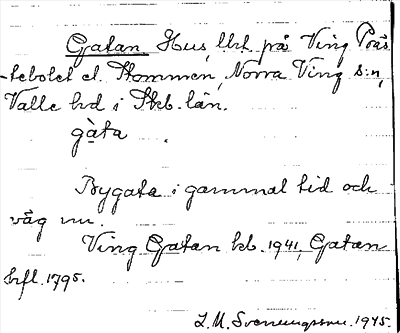 Gatan Hus, lht. på Ving Präs-
tebolet el. Stommen, Norra Ving s:n,
Valle hd i Skb. län.
gàta
Bygata i gammal tid och
väg nu.
Ving Gatan kb. 1941, Gatan
hfl. 1795.
L. M. Svenungsson. 1945.